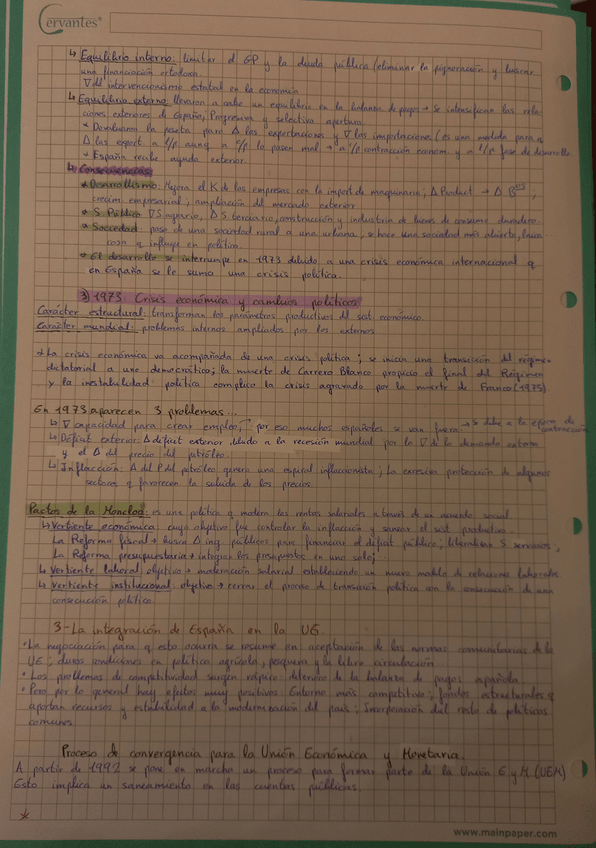 Cervantes
↳ Equilibrio interno: limitar el GP y la deuda pública (eliminar la pignoración y buscar
una financiación ortodoxa
∇ del intervencionismo estatal en la economía
↳ Equilibrio externo: llevaron a cabo un equilibrio en la balanza de pagos → Se intensifican las rela-
ciones exteriores de España, Progresiva y selectiva apertura.
* Devaluaron la peseta para Δ las exportaciones y ∇ las importaciones (es una medida para
Δ las export a l/p aunq a c/p lo pasen mal → a c/p contracción econom. y a l/p fase de desarrollo
* España recibe ayuda exterior.
↳ Consecuencias:
* Desarrollismo: Mejora el K de las empresas con la import de maquinaria; Δ Product → Δ Bºs;
crecim. empresarial; ampliación del mercado exterior
* S. Público ∇S agrario, Δ S. terciario, construcción y industria de bienes de consumo duradero.
* Sociedad: pasa de una sociedad rural a una urbana, se hace una sociedad más abierta,
q influye en política.
* El desarrollo se interrumpe en 1973 debido a una crisis económica internacional q
en España se le suma una crisis política.
3) 1973 Crisis económica y cambios políticos
Carácter estructural: transforman los parámetros productivos del sist. económico.
Carácter mundial: problemas internos ampliados por los externos
* La crisis económica va acompañada de una crisis política; se inicia una transición del régimen
dictatorial a uno democrático; la muerte de Carrero Blanco propicio el final del Régimen
y la inestabilidad política complico la crisis agravado por la muerte de Franco (1975)
En 1973 aparecen 3 problemas...
↳ ∇ capacidad para crear empleo; por eso muchos españoles se van fuera → se debe a la época de
contracción
↳ Déficit exterior: Δ déficit exterior debido a la recesión mundial por la ∇ de la demanda externa
y el Δ del precio del petróleo
↳ Inflacción: Δ del P del petróleo genera una espiral inflaccionista; La excesiva protección de algunos
sectores q favorecen la subida de los precios.
Pactos de la Moncloa: es una política q modera las rentas salariales a través de un acuerdo social
↳ Vertiente económica: cuyo objetivo fue controlar la inflacción y sanear el sist productivo
La Reforma fiscal → busca Δ ing. públicos para financiar el déficit público; liberalizar S servicios,
La Reforma presupuestaria → integrar los presupuestos en uno solo;
↳ Vertiente laboral: objetivo → moderación salarial estableciendo un nuevo modelo de relaciones laborales
↳ Vertiente institucional: objetivo → cerrar el proceso de transición política con la consecución de una
consecución política.
3- La integración de España en la UE
• La negociación para q esto ocurra se resume en: aceptación de las normas comunitarias de la
UE; duras condiciones en política agrícola, pesquera y la libre circulación.
• Los problemas de competitividad surgen rápido: deterioro de la balanza de pagos española.
• Pero por lo general hay efectos muy positivos: Entorno más competitivo; fondos estructurales q
aportan recursos y estabilidad a la modernización del país; Incorporación del resto de políticas
comunes.
Proceso de convergencia para la Unión Económica y Monetaria.
A partir de 1992 se pone en marcha un proceso para formar parte de la Unión E. y M. (UEM)
Esto implica un saneamiento en las cuentas públicas.
*
www.mainpaper.com